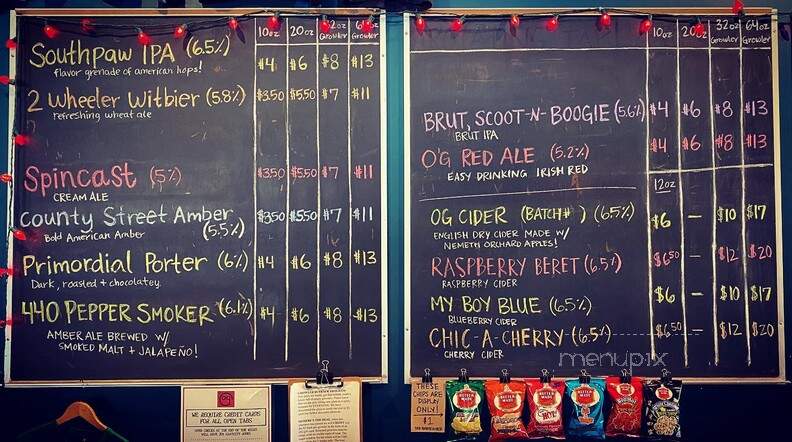 10oz 20oz 32oz Growler 64oz Growler
Southpaw IPA (6.5%) $4 $6 $8 $13
flavor grenade of american hops!
2 Wheeler Witbier (5.8%) $3.50 $5.50 $7 $11
refreshing wheat ale
Spincast (5%) $3.50 $5.50 $7 $11
CREAM ALE
County Street Amber (5.5%) $3.50 $5.50 $7 $11
Bold American Amber
Primordial Porter (6%) $4 $6 $8 $13
Dark, roasted + chocolatey.
440 PEPPER SMOKER (6.1%) $4 $6 $8 $13
AMBER ALE BREWED W/
SMOKED MALT + JALAPEÑO!
10oz 20oz 32oz Growler 64oz Growler
BRUT, SCOOT-N-BOOGIE (5.6%) $4 $6 $8 $13
BRUT IPA
O'G RED ALE (5.2%) $4 $6 $8 $13
EASY DRINKING IRISH RED
12oz
OG CIDER (BATCH# ) (6.5%) $6 – $10 $17
ENGLISH DRY CIDER MADE W/
NEMETH ORCHARD APPLES!
RASPBERRY BERET (6.5%) $6.50 – $12 $20
RASPBERRY CIDER
MY BOY BLUE (6.5%) $6 – $10 $17
BLUEBERRY CIDER
CHIC-A-CHERRY (6.5%) $6.50 – $12 $20
CHERRY CIDER
menupix
WE REQUIRE CREDIT CARDS
FOR ALL OPEN TABS
THESE
CHIPS ARE
DISPLAY
ONLY!
$1
BETTER MADE
BETTER MADE
BETTER MADE
BETTER MADE
BETTER MADE